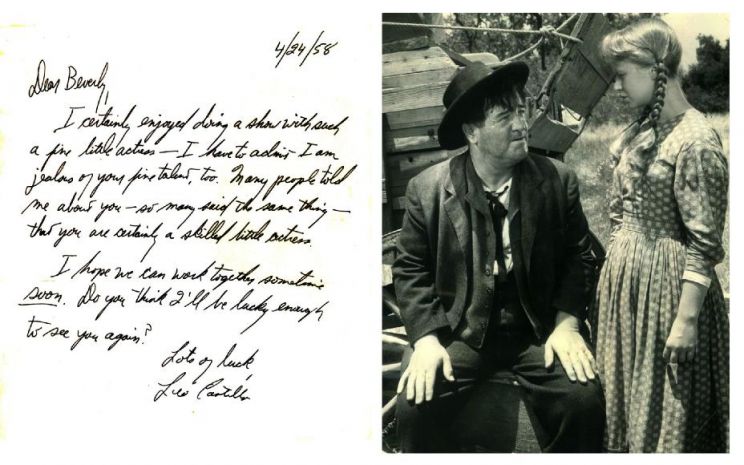 4/24/58
Dear Beverly,
I certainly enjoyed doing a show with such
a fine little actress — I have to admit I am
jealous of your fine talent, too. Many people told
me about you — so many said the same thing —
that you are certainly a skilled little actress.
I hope we can work together sometime
soon. Do you think I'll be lucky enough
to see you again?
Lots of luck
Leo Castillo